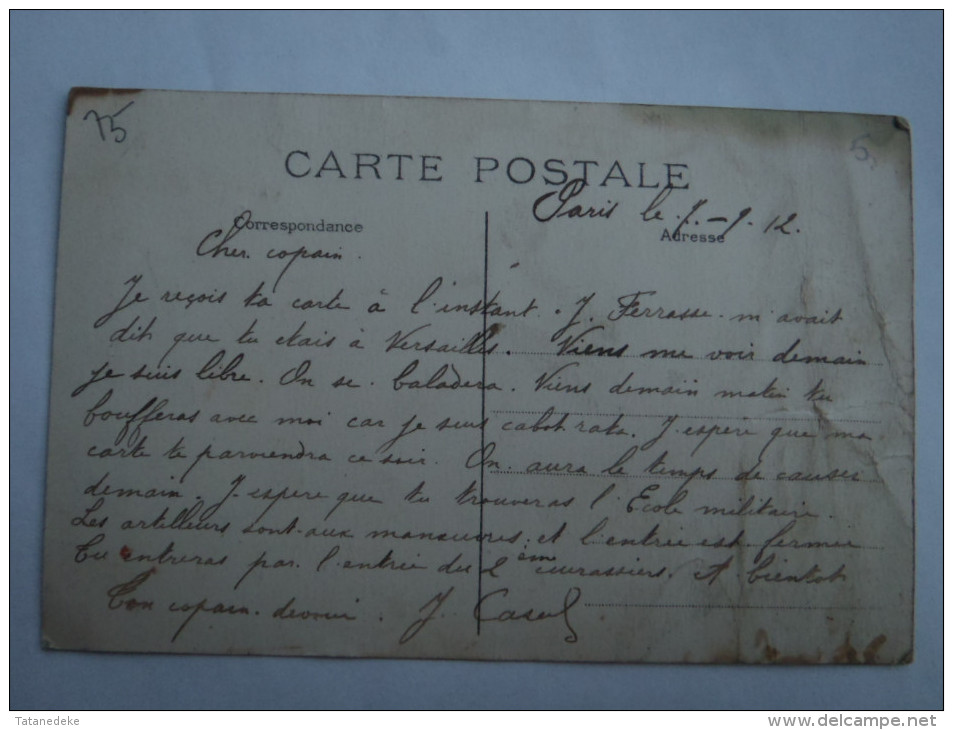 75
5
CARTE POSTALE
Paris le 7-9-12.
Correspondance
Adresse
Cher copain.
Je reçois ta carte à l'instant. J. Ferrasse m'avait
dit que tu étais à Versailles. Viens me voir demain
je suis libre. On se baladera. Viens demain matin tu
boufferas avec moi car je suis cabot rata. J'espère que ma
carte te parviendra ce soir. On aura le temps de causer
demain. J'espère que tu trouveras l'Ecole militaire.
Les artilleurs sont aux manœuvres et l'entrée est fermée
Tu entreras par l'entrée du 2ème cuirassiers. A bientôt
Ton copain dévoué. J.
Tatanedeke
http://www.delcampe.net